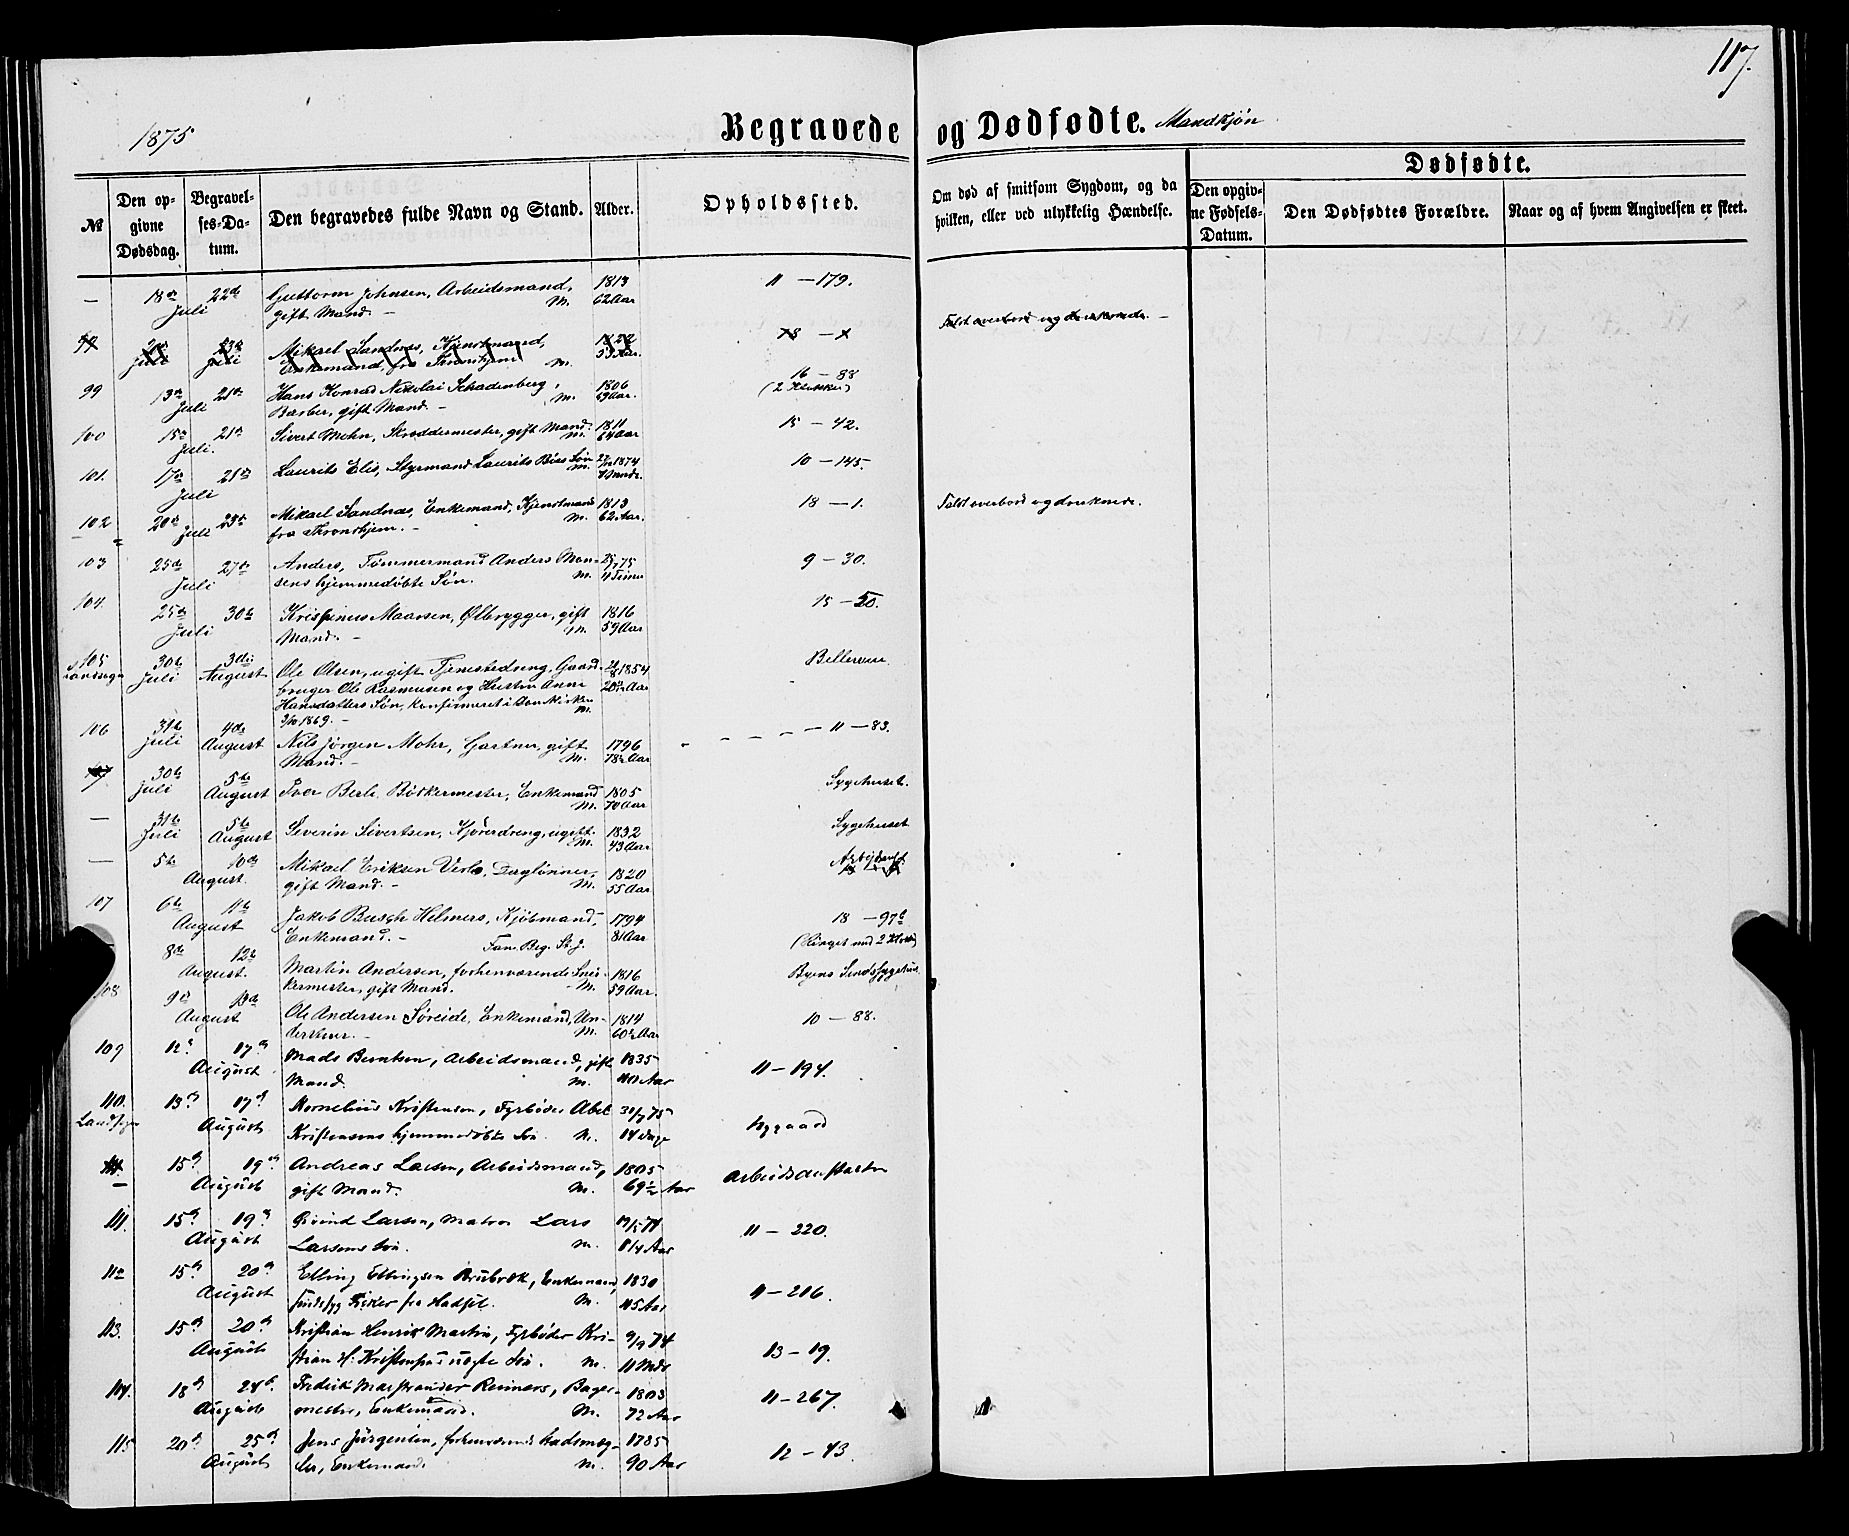 117.
1875
Begravede og Dødfødte. Mandkjøn
Dødfødte.
№
Den opgivne Dødsdag.
Begravelses-Datum.
Den begravedes fulde Navn og Stand.
Alder.
Opholdssted.
Om død af smitsom Sygdom, og da hvilken, eller ved ulykkelig Hændelse.
Den opgivne Fødsels-Datum.
Den Dødfødtes Forældre.
Naar og af hvem Angivelsen er skeet.
— 18de 22de Guttorm Johnsen, Arbeidsmand, 1813 11 — 179.
Juli gift Mand. — M. 62 Aar
Mikael Sandnæs, Kjendtmand, 18 — 1 Faldt overbord og druknede. —
Juli Juli Enkemand, fra Thronhjem M.
99 13de 21de Hans Konrad Nikolai Schadenberg, 1806 16 — 88
Juli Barber, gift Mand. — M. 69 Aar. (2 Klokker)
100 15de 21de Sivert Mohn, Skreddermester, gift Mand. 1811 15 — 42.
Juli. M. 64 Aar
101. 17de 21de Laurits Elis, Styrmand Laurits Søn 1874 10 — 145.
Juli M.
102 20de 23de Mikael Sandnæs, Enkemand, Kjendtmand 1813 18 — 1. Faldt overbord og druknede.
Juli fra Thronhjem. — M. 62 Aar.
103 25de 27de Anders, Tømmermand Anders Mon- 25/7 75 9 — 30.
Juli sens hjemmedøbte Søn. M. 4 Timer
104. 25de 30te Krispinus Maarsen, Ølbrygger, gift 1816 15 — 50.
Juli Mand. — M. 59 Aar
105 30te 3die Ole Olsen, ugift Tjenestedreng, Gaard- 1854 Bellevue.
Landsogn Juli August bruger Ole Rasmusen og Hustru Anne Aar
Hansdatters Søn, konfirmeret i Domkirken M.
1869. —
106 31te 4de Nils Jørgen Mohr, Gartner, gift 1796 11 — 83.
Juli August Mand. — M. 78½ Aar
107 30te 5te Iver Berli, Bødkermester, Enkemand 1805 Sygehuset.
Juli August M. 70 Aar
— 31te 5te Severin Sivertsen, Kjøredreng, ugift. 1832 Sygehuset
Juli August M. 43 Aar
— 5te 10de Mikael Eriksen, Daglønner, 1820
August. gift Mand. — M. 55 Aar
107 6te 11te Jakob Busch Helmers, Kjøbmand, 1794 18 — 97
August Enkemand. — Fam. Beg. St. J. 81 Aar (Ringet med 2 Klokker)
8de 12te Martin Andersen, forhenværende Sne- 1816 Byens Sindssygehus
August. kermester, gift Mand. M. 59 Aar.
108 9de 13de Ole Andersen Søreide, Enkemand, 1814 10 — 88.
August M. 60½ Aar
109 12te 17de Mads Berntsen, Arbeidsmand, gift 1835 11 — 194.
August Mand. M. 40 Aar
110. 13de 17de Kornelius Kristensen, Fyrbøder Abel 31/7 75 Nygaard
Landsogn August Kristensens hjemmedøbte Søn M. 14 Dage
15de 19de Andreas Larsen, Arbeidsmand, 1805 Arbeidsanstalten
August gift Mand. M. 69½ Aar
111. 15de 19de Larsen, Matros Lars 11 — 220.
August Larsens Søn. M. Aar
112 15de 20de Elling Ellingsen Brubræk, Enkemand, 1830 11 — 216.
August Fisker fra Hadsel. M. 45 Aar
113. 15de 20de Kristian Henrik Martin, Fyrbøder Kri- 9/9 74 13 — 19.
August stian H. Kristensens uægte Søn. M. 11 Mdr
114. 18de 24de Fredrik Marstrander Reimers, Bager- 1803 11 — 267.
August mester, Enkemand. M. 72 Aar
115 20de 25de Jens Jürgensen, forhenværende Stadsmæg- 1785 12 — 43.
August ler, Enkemand. M. 90 Aar